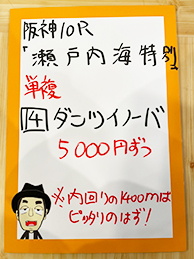 阪神10R
「瀬戸内海特別」
単複
14 ダンツイノーバ
5000円ずつ
※内回りの1400mは
ピッタリのはず!